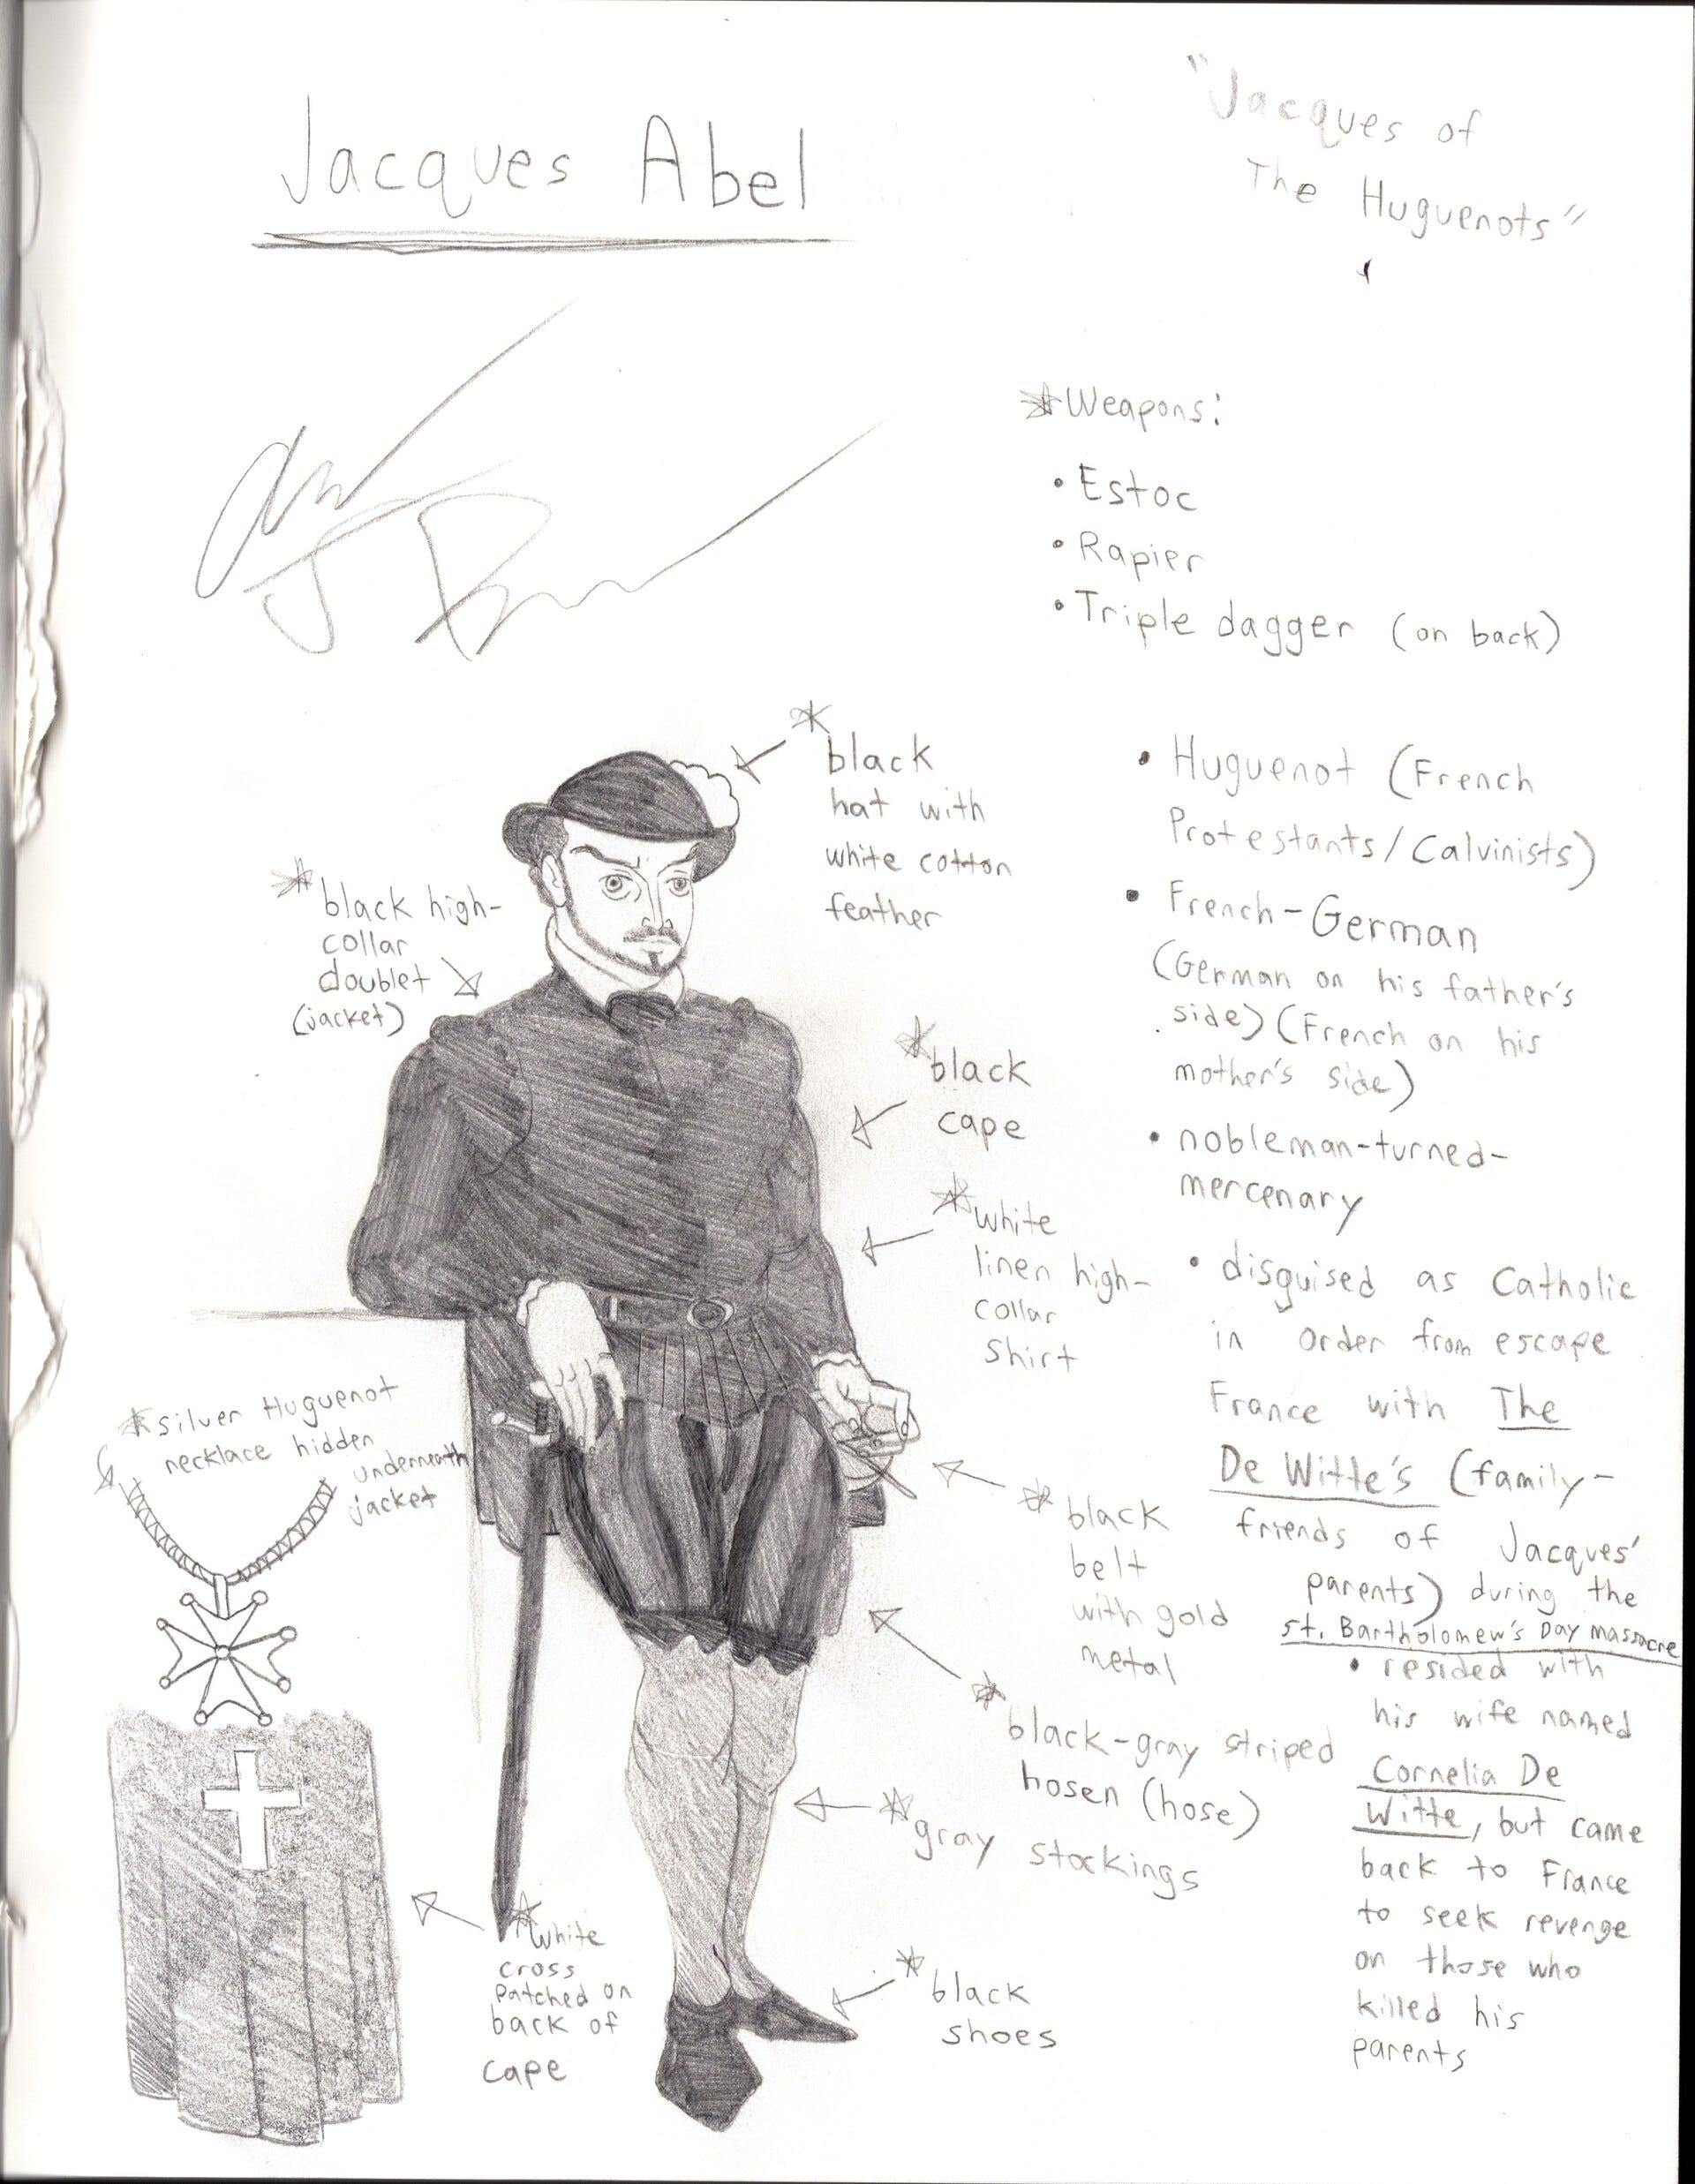 Jacques Abel
"Jacques of
The Huguenots"
Weapons:
• Estoc
• Rapier
• Triple dagger (on back)
black
hat with
white cotton
feather
black high-
collar
doublet
(jacket)
black
cape
white
linen high-
collar
shirt
black
belt
with gold
metal
black-gray striped
hosen (hose)
gray stockings
black
shoes
silver Huguenot
necklace hidden
underneath
jacket
white
cross
patched on
back of
cape
• Huguenot (French
Protestants/Calvinists)
• French-German
(German on his father's
side) (French on his
mother's side)
• nobleman-turned-
mercenary
• disguised as Catholic
in order from escape
France with The
De Witte's (family-
friends of Jacques'
parents) during the
St. Bartholomew's Day massacre
• resided with
his wife named
Cornelia De
Witte, but came
back to France
to seek revenge
on those who
killed his
parents